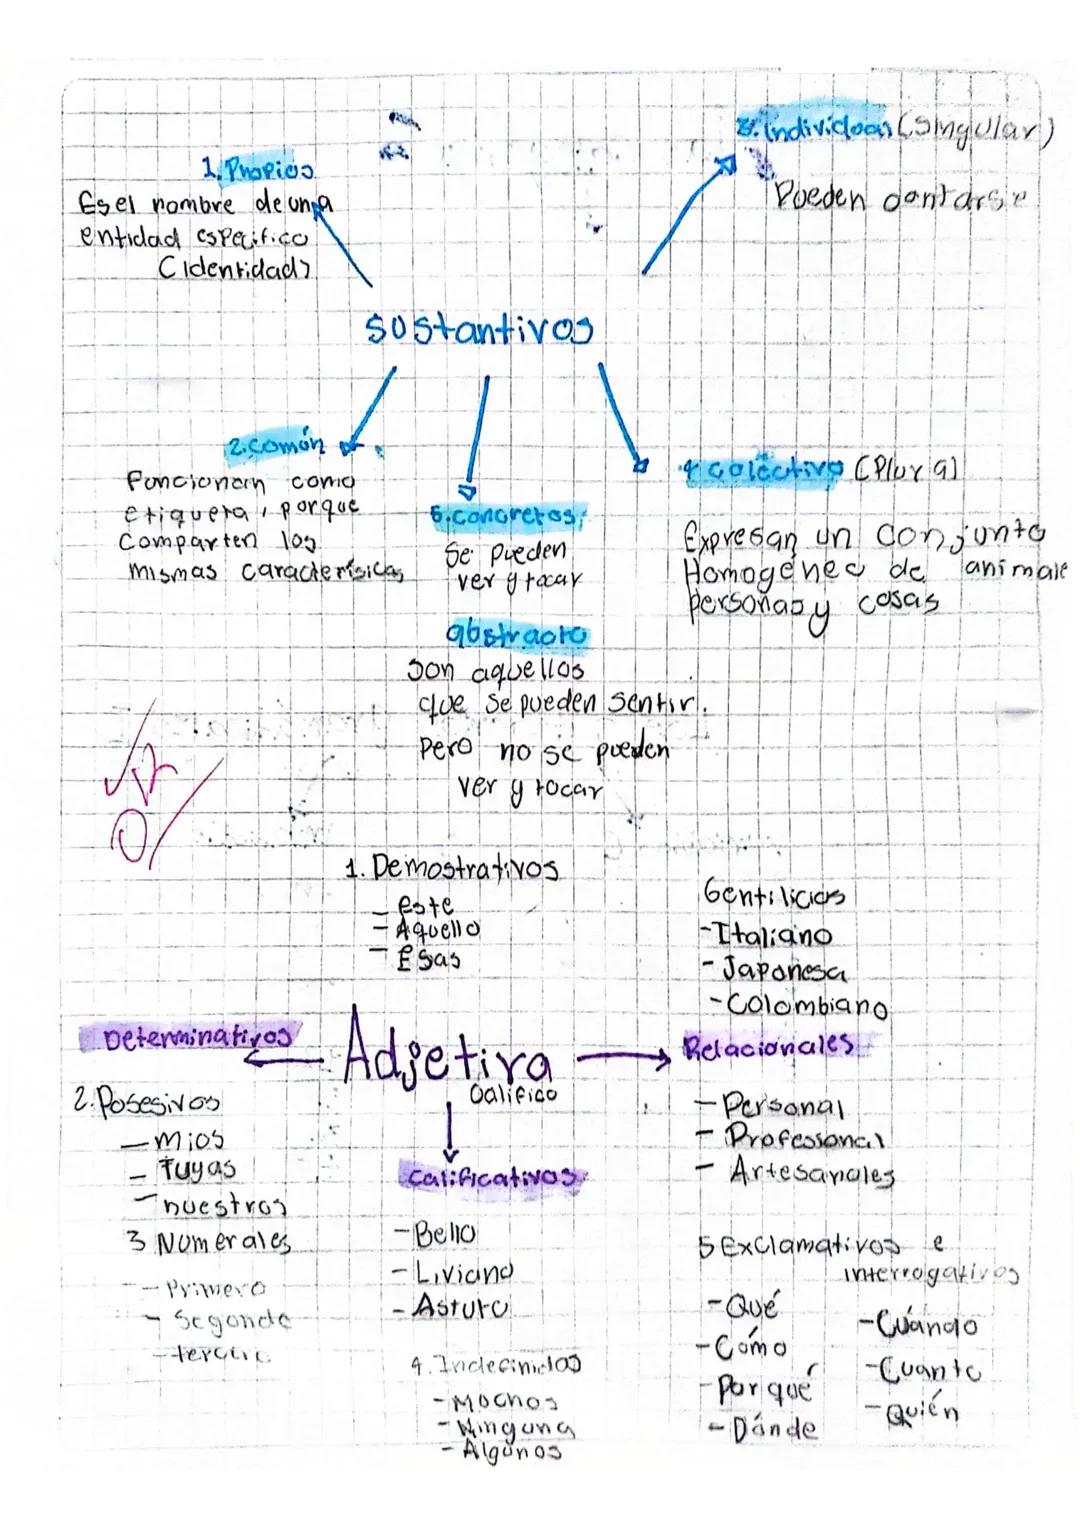 3. Individual (Singular)
Pueden contarse
1. Propios
Es el nombre de una
entidad especifico
(identidad)
Sustantivos
2. Común
Funcionan como
etiqueta, porque
Comparten las
mismas caracterísicas
5. Concretos
Se pueden
ver y tocar
4 colectivo (Plural)
Expresan un Conjunto
Homogéneo de animale
personas y cosas
abstracto
son aquellos
que se pueden sentir.
Pero no se pueden
ver y tocar
1. Demostrativos
- este
- Aquello
- Esas
Gentilicios
- Italiano
- Japonesa
- Colombiano
Determinativos
Adjetivo
Califico
Relacionales
2. Posesivos
- mios
- Tuyas
- nuestros
3 Numerales
- Primero
- Segundo
- tercero
Calificativos
- Bello
- Liviano
- Asturo
4. Indefinidos
- Muchos
- Ninguna
- Algunos
- Personal
- Professonal
- Artesanales
5 Exclamativos e
interrogativos
- Qué
- Cómo
- Por qué
- Dónde
- Cuándo
- Cuanto
- Quién